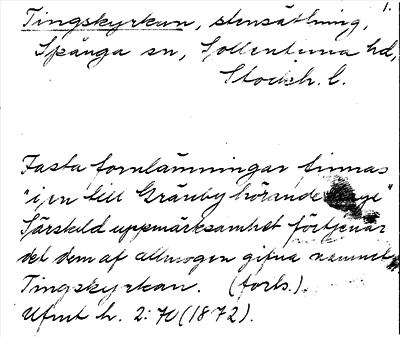 1.
Tingskyrkan, stensättning,
Spånga sn, Sollentuna hd,
Stockh. l.
Fasta fornlämningar finnas
"i en till Gränby hörande hage"
Särskild uppmärksamhet förtjenar
det dem af allmogen gifna namnet
Tingskyrkan. (forts.).
Ufmt h. 2: 70 (1872).